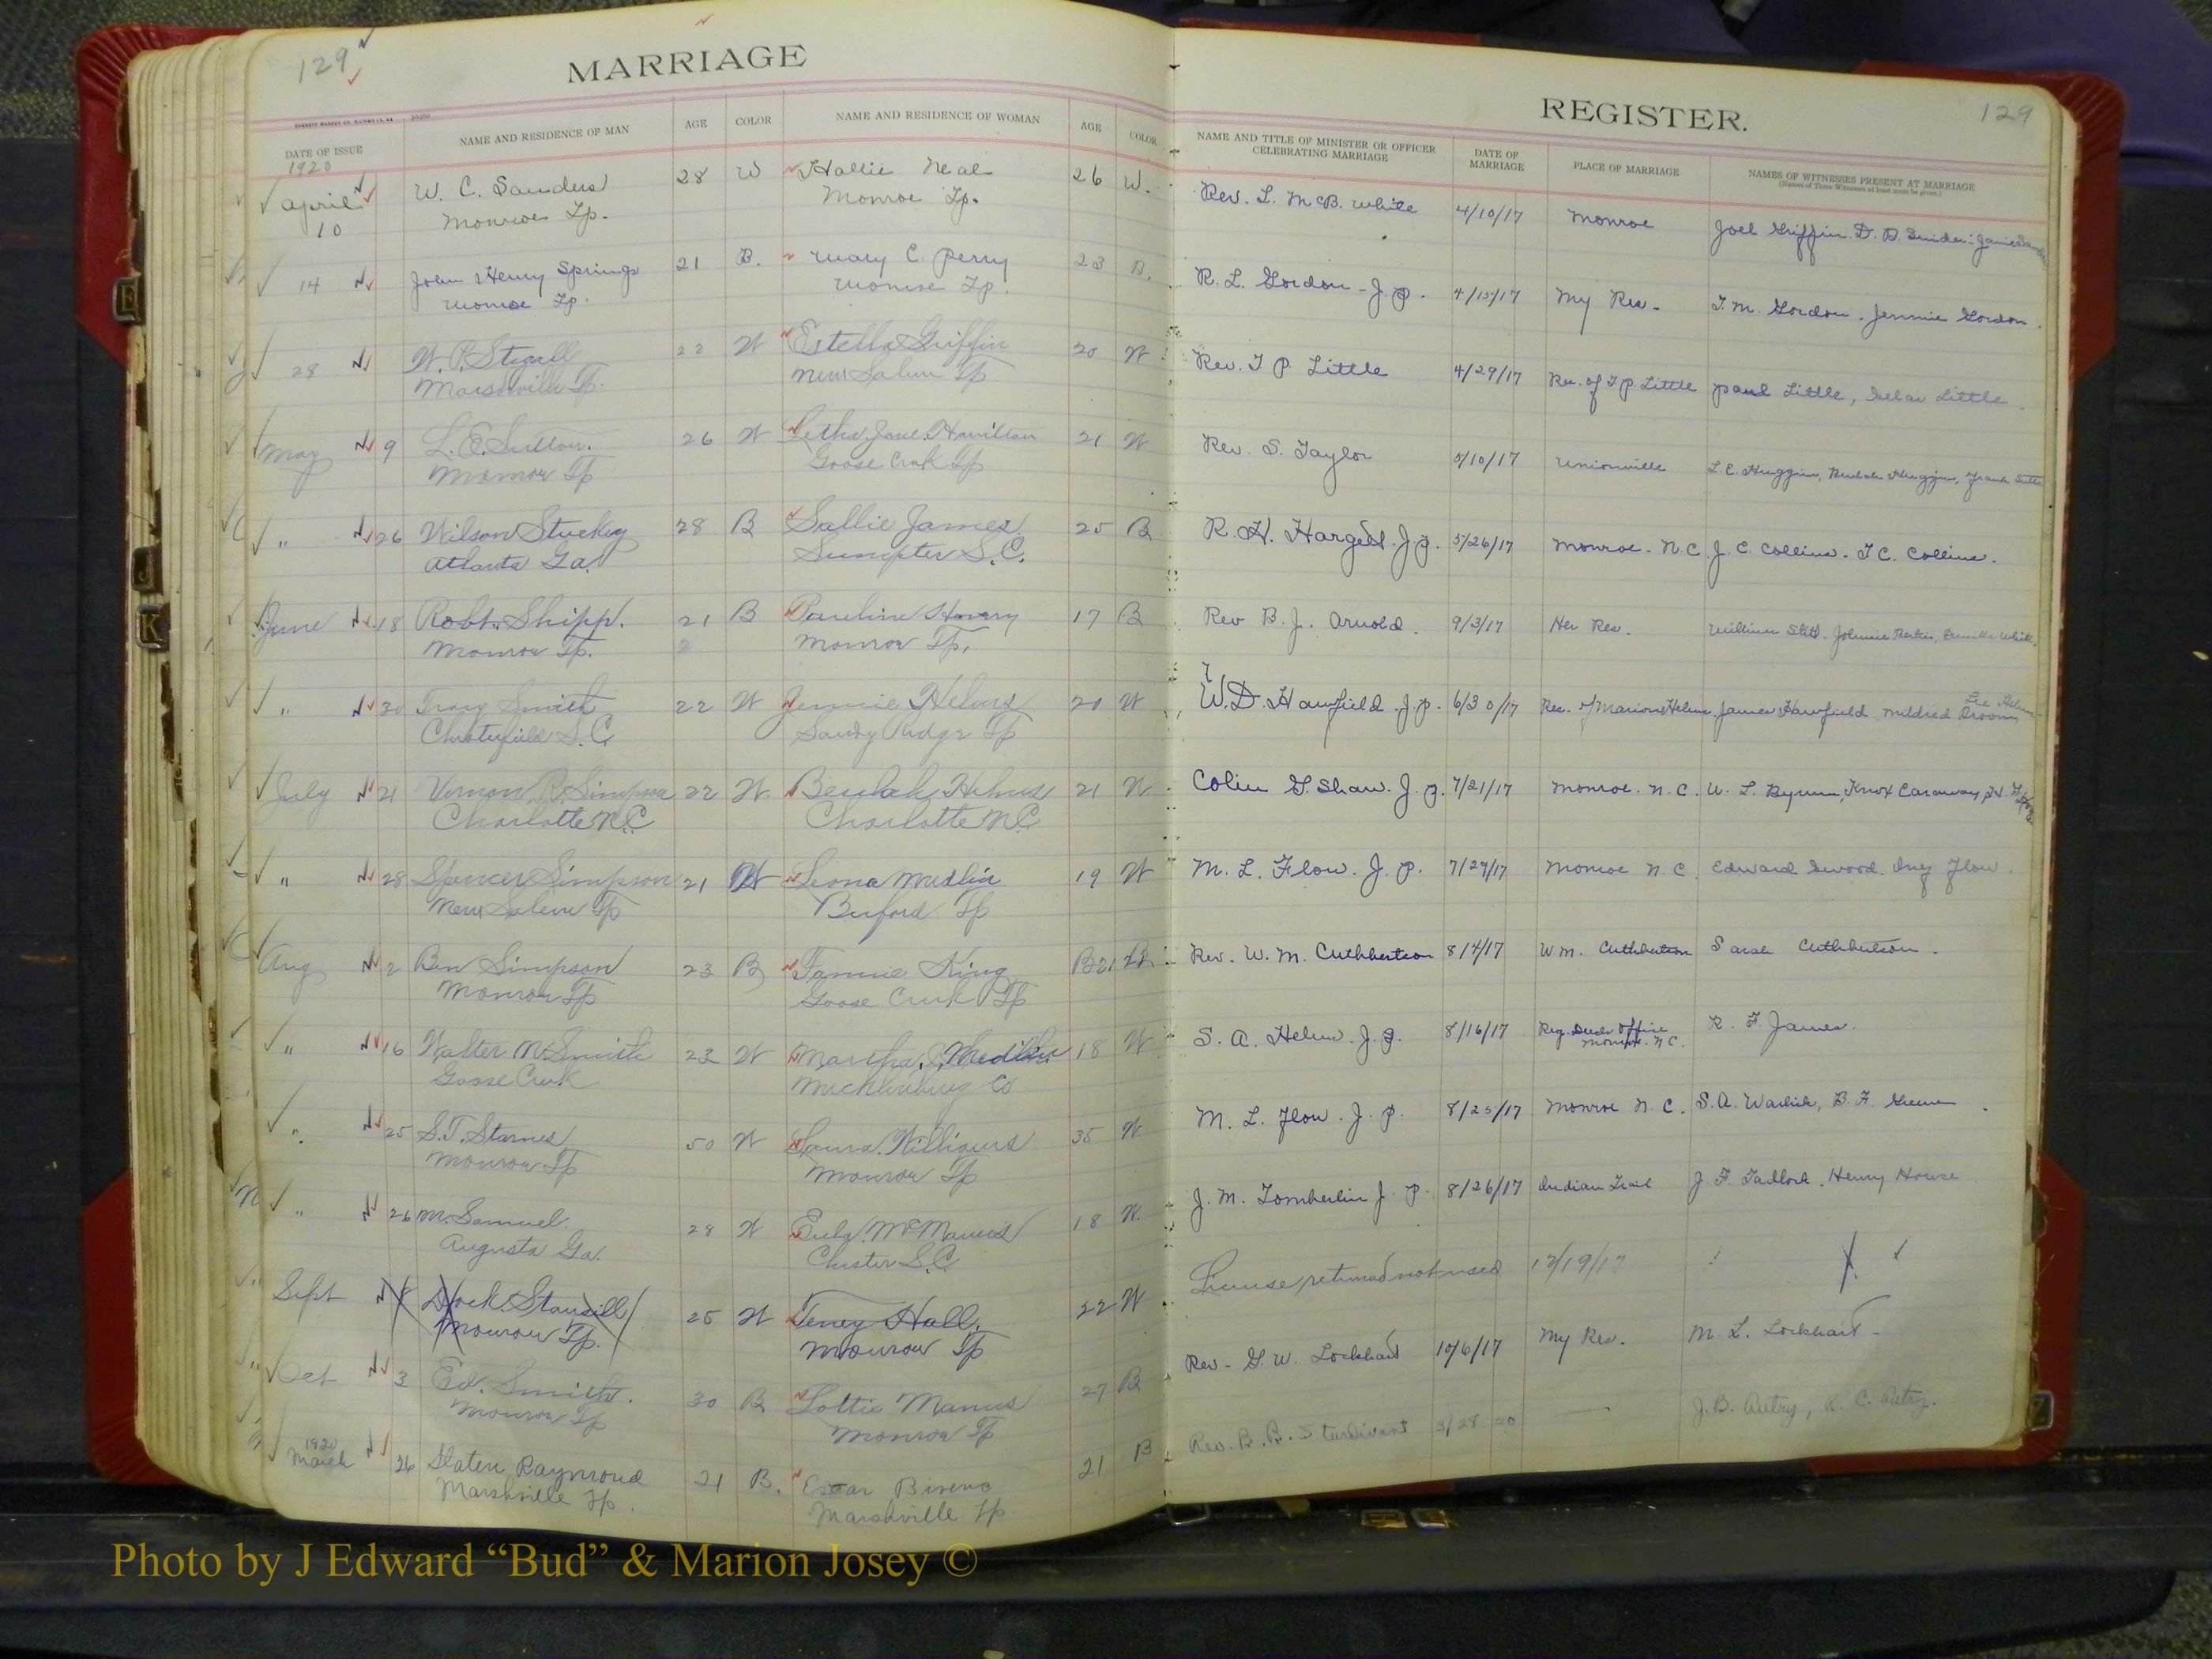 129
MARRIAGE
DATE OF ISSUE
NAME AND RESIDENCE OF MAN
AGE
COLOR
NAME AND RESIDENCE OF WOMAN
AGE
COLOR
1920
April 10 W. C. Sanders 28 W Hallie Neal 26 W.
Monroe Tp. Monroe Tp.
14 John Henry Springs 21 B. Mary C. Perry 23 B.
Monroe Tp. Monroe Tp.
28 W. P. Stegall 22 W Estella Griffin 20 W
Marshville Tp. New Salem Tp
May 9 L. E. Sutton. 26 W Letha Jane Hamilton 21 W
Monroe Tp Goose Creek Tp
" 26 Wilson Stuckey 28 B Sallie James 25 B
Atlanta Ga. Sumpter S.C.
June 18 Robt. Shipp. 21 B Pauline 17 B
Monroe Tp. Monroe Tp.
" 30 Smith 22 W Jennie Helms 20 W
Chesterfield S.C. Sandy Ridge Tp
July 21 Vernon R. Simpson 22 W. Beulah Helms 21 W
Charlotte N.C Charlotte N.C
" 28 Spencer Simpson 21 W Leona Medlin 19 W
New Salem Tp Buford Tp
Aug 2 Ben Simpson 23 B Fannie King B 21 B
Monroe Tp Goose Creek Tp
" 16 Walter M. Smith 23 W Martha J. Medlin 18 W
Goose Creek Mecklenburg Co
" 25 S. T. Starnes 50 W Laura Williams 35 W
Monroe Tp Monroe Tp
" 26 M. Samuel 28 W Eula McManus 18 W
Augusta Ga. Chester S.C.
Sept 8 Dock Stancill 25 W Teney Hall. 22 W
Monroe Tp. Monroe Tp
Oct 3 Ed. Smith. 30 B Lottie Manus 27 B
Monroe Tp Monroe Tp
1920
March 26 Slaten Raymond 21 B. Bivens 21 B
Marshville Tp. Marshville Tp
REGISTER.
129
NAME AND TITLE OF MINISTER OR OFFICER CELEBRATING MARRIAGE
DATE OF MARRIAGE
PLACE OF MARRIAGE
NAMES OF WITNESSES PRESENT AT MARRIAGE
(Names of Three Witnesses at least must be given.)
Rev. L. McB. White 4/10/17 Monroe Joel Griffin. D. B. Snider: James
R. L. Gordon - J. P. 4/15/17 My Res - T. M. Gordon. Jennie Gordon.
Rev. T P. Little 4/29/17 Res. of T P. Little Paul Little, Little.
Rev. S. Taylor 5/10/17 Unionville L. E. Huggins, Beulah Huggins, Frank
R. H. Hargett. J. P. 5/26/17 Monroe - N.C. J. C. Collins - T C. Collins.
Rev B. J. Arnold. 9/3/17 Her Res. William Stitt.
W. D. Hawfield. J. P. 6/30/17 Res. of Marion Helms James Hawfield Mildred Broom Lee Helms
Colin G. Shaw. J. P. 7/21/17 Monroe. N. C. W. L. Byrum, Knox Caraway
M. L. Flow. J. P. 7/29/17 Monroe N. C. Edward Flow.
Rev. W. M. Cuthbertson 8/4/17 Wm. Cuthbertson Sarah Cuthbertson.
S. A. Helms J. P. 8/16/17 Reg. Deeds Office Monroe. N.C. R. F. James.
M. L. Flow. J. P. 8/25/17 Monroe N. C. S. A. Warlick, B. F. Greene
J. M. Tomberlin J. P. 8/26/17 Indian Trail J. F. Tadlock. Henry House
License returned not used 12/19/17
Rev - G. W. Lockhart 10/6/17 My Res. M. L. Lockhart -
Rev. B. R. Sturdivant 3/28 20 J. B. Autry, K. C. Autry.
Photo by J Edward “Bud” & Marion Josey ©
E
J
K